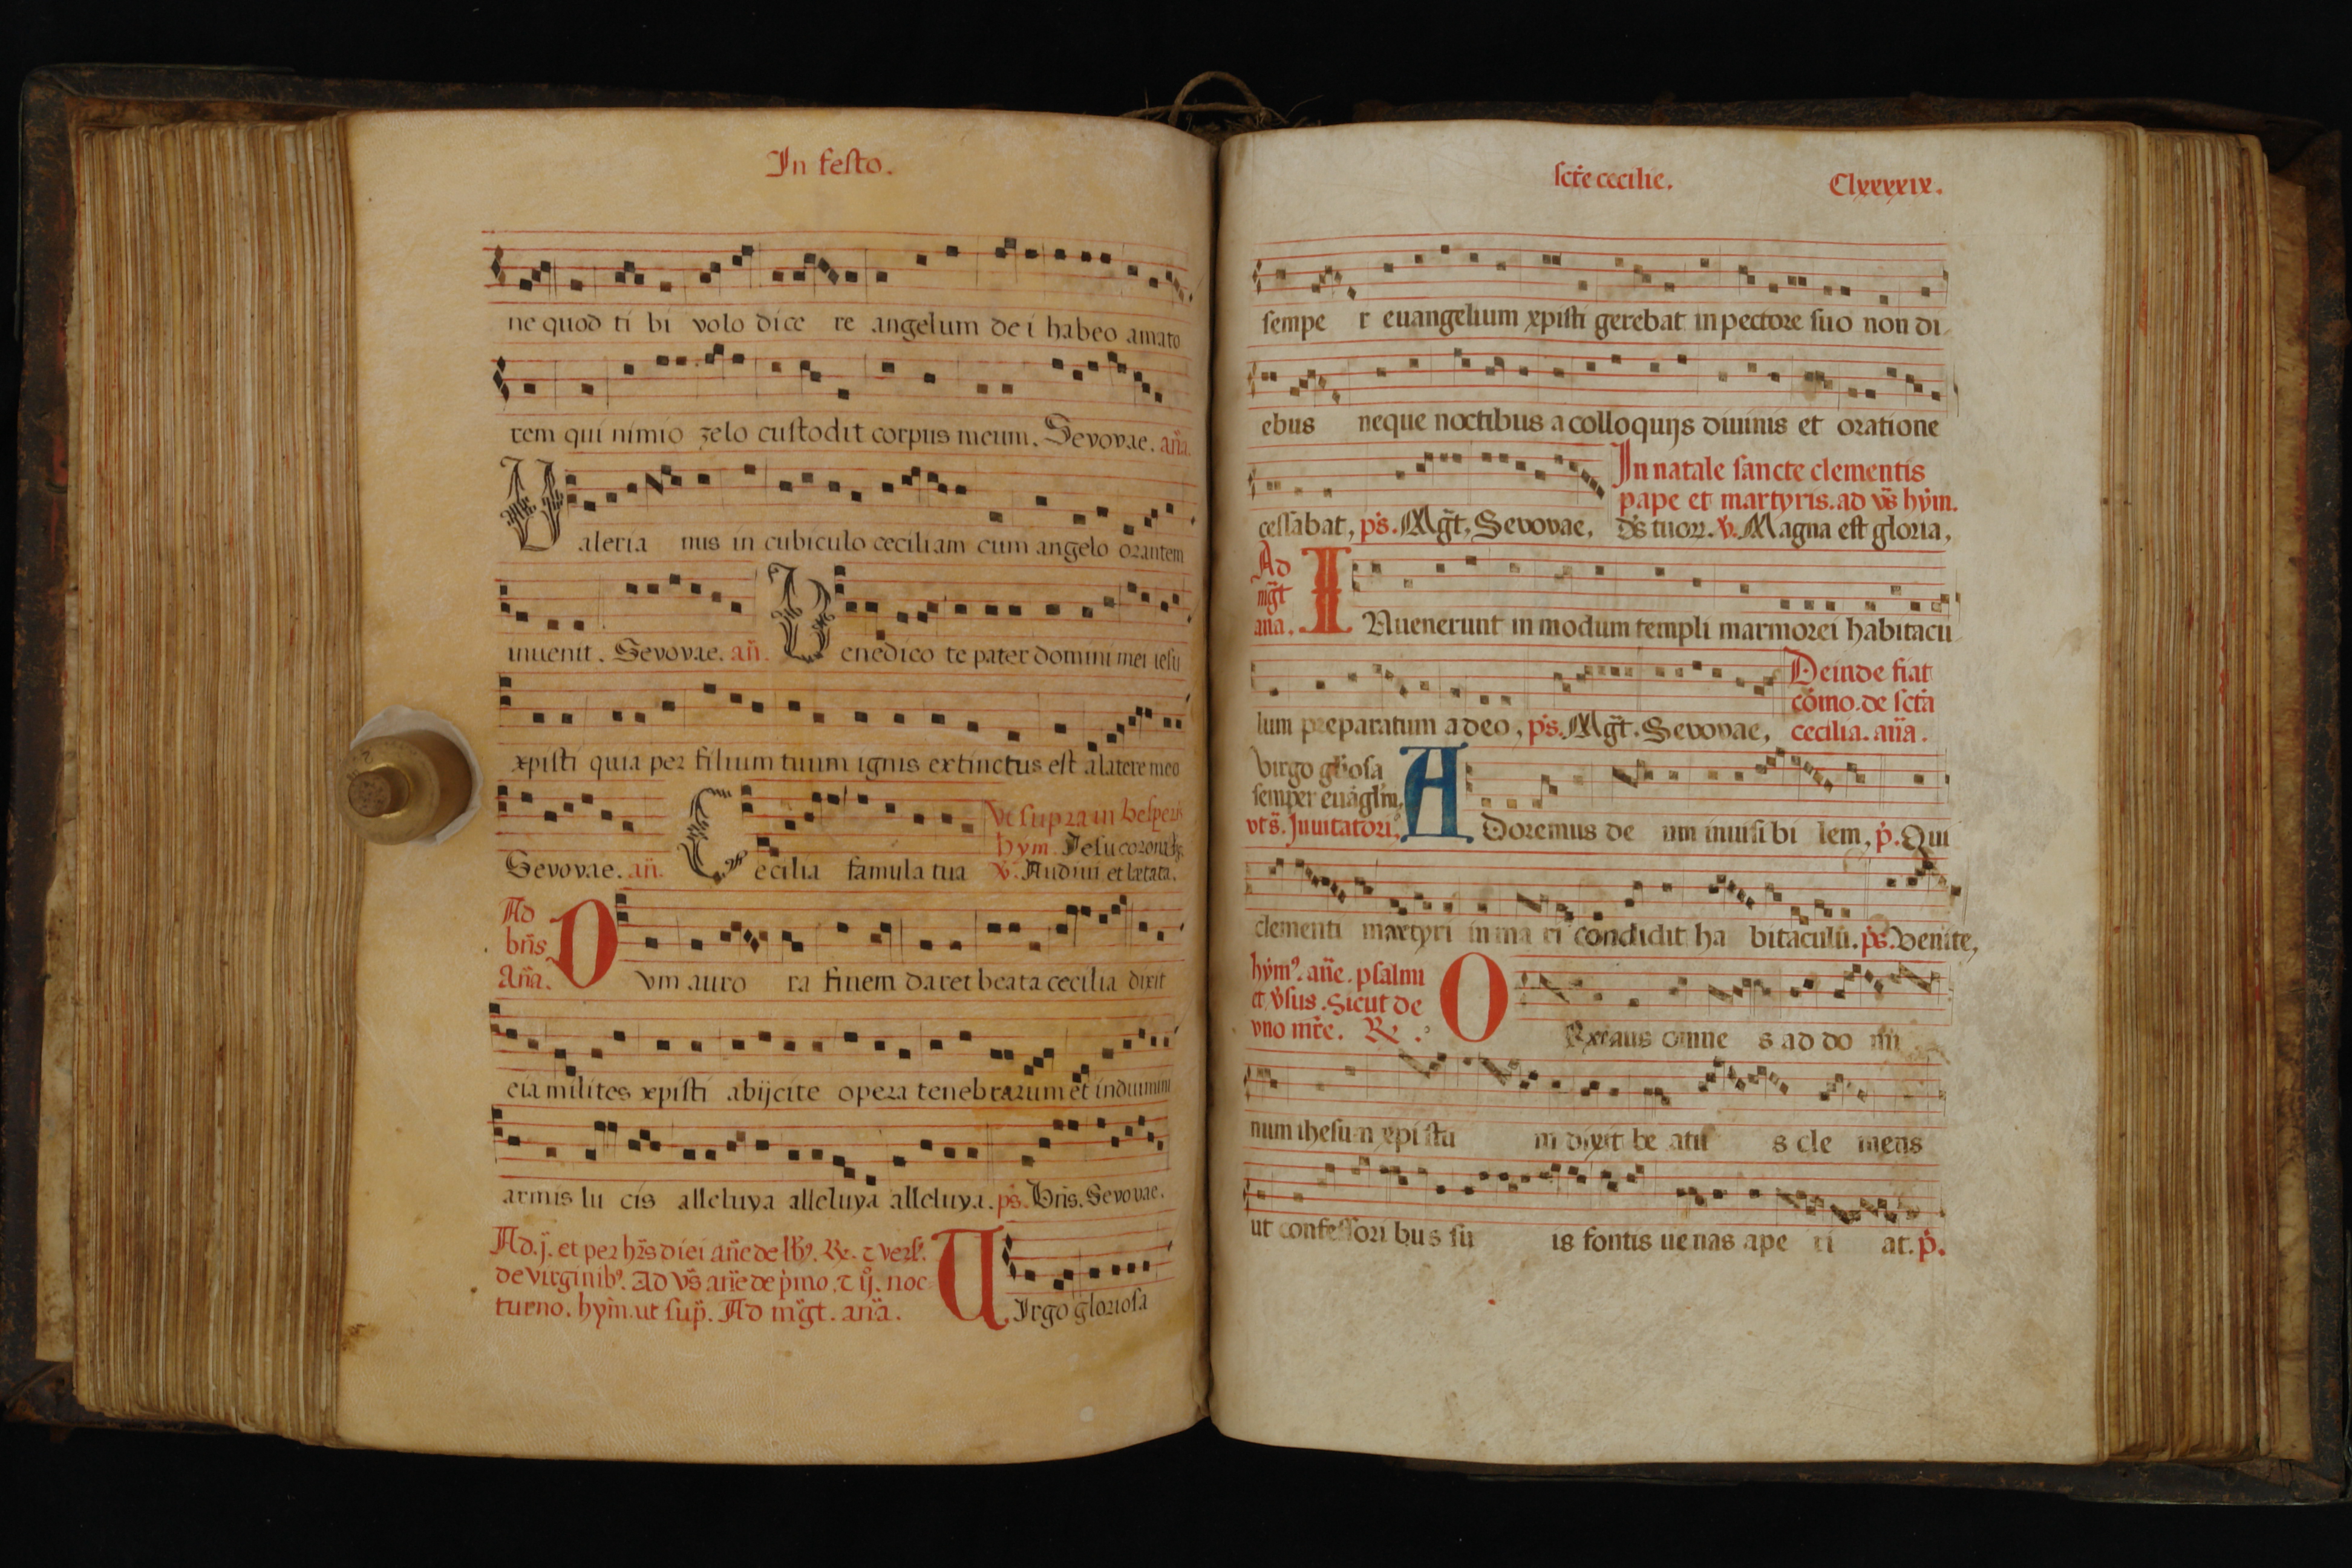 In festo.
ne quod ti bi volo dice re angelum de i habeo amato
rem qui nimio zelo custodit corpus meum. Sevovae. an̄a.
Valeria nus in cubiculo ceciliam cum angelo orantem
inuenit. Sevovae. an̄.
Benedico te pater domini mei iesu
xpisti quia per filium tuum ignis extinctus est a latere meo
Sevovae. an̄.
Cecilia famula tua
Vt supra in vesperis
hym. Jesu corona
v̇. Audiui et
Ad
brīs
An̄a.
Dvm auro ra finem daret beata cecilia dixit
eia milites xpisti abijcite opera tenebrarum et induimini
armis lu cis alleluya alleluya alleluya. ps̄. Bn̄s. Sevovae.
Ad.j. et per hr̄s diei an̄e de lb'. R. ⁊ vers'.
de virginib'. Ad vs̄ an̄e de p̄mo. ⁊ ij. noc
turno. hym̄. ut sup̄. Ad mḡt. an̄a.
VIrgo gloriosa
scte cecilie. Clxxxxix.
sempe r euangelium xpisti gerebat in pectore suo non di
ebus neque noctibus a colloquijs diuinis et oratione
In natale sancte clementis
pape et martyris. ad vs̄ hym̄.
cessabat, ps̄. Mḡt, Sevovae, ds̄ tuoꝝ. v̇. Magna est gloria,
Ad
mḡt
an̄a.
INuenerunt in modum templi marmorei habitacu
lum preparatum a deo, ps̄. Mḡt. Sevovae,
Deinde fiat
cōmo. de sctā
cecilia. an̄a.
virgo glōosa
semper euāgl̄m,
vts̄. Jnuitatori',
ADoremus de um inuisi bi lem, ṗ. Qui
clementi martyri in ma ri condidit ha bitaculū. ps̄. Venite,
hym'. an̄e. psalmi
et v̇sus. Sicut de
vno mr̄e. R.
ORemus omne s ad do mi
num ihesum xpi stu m dixit be atu s cle mens
ut confessori bus su is fontis uenas ape ri at. ṗ.